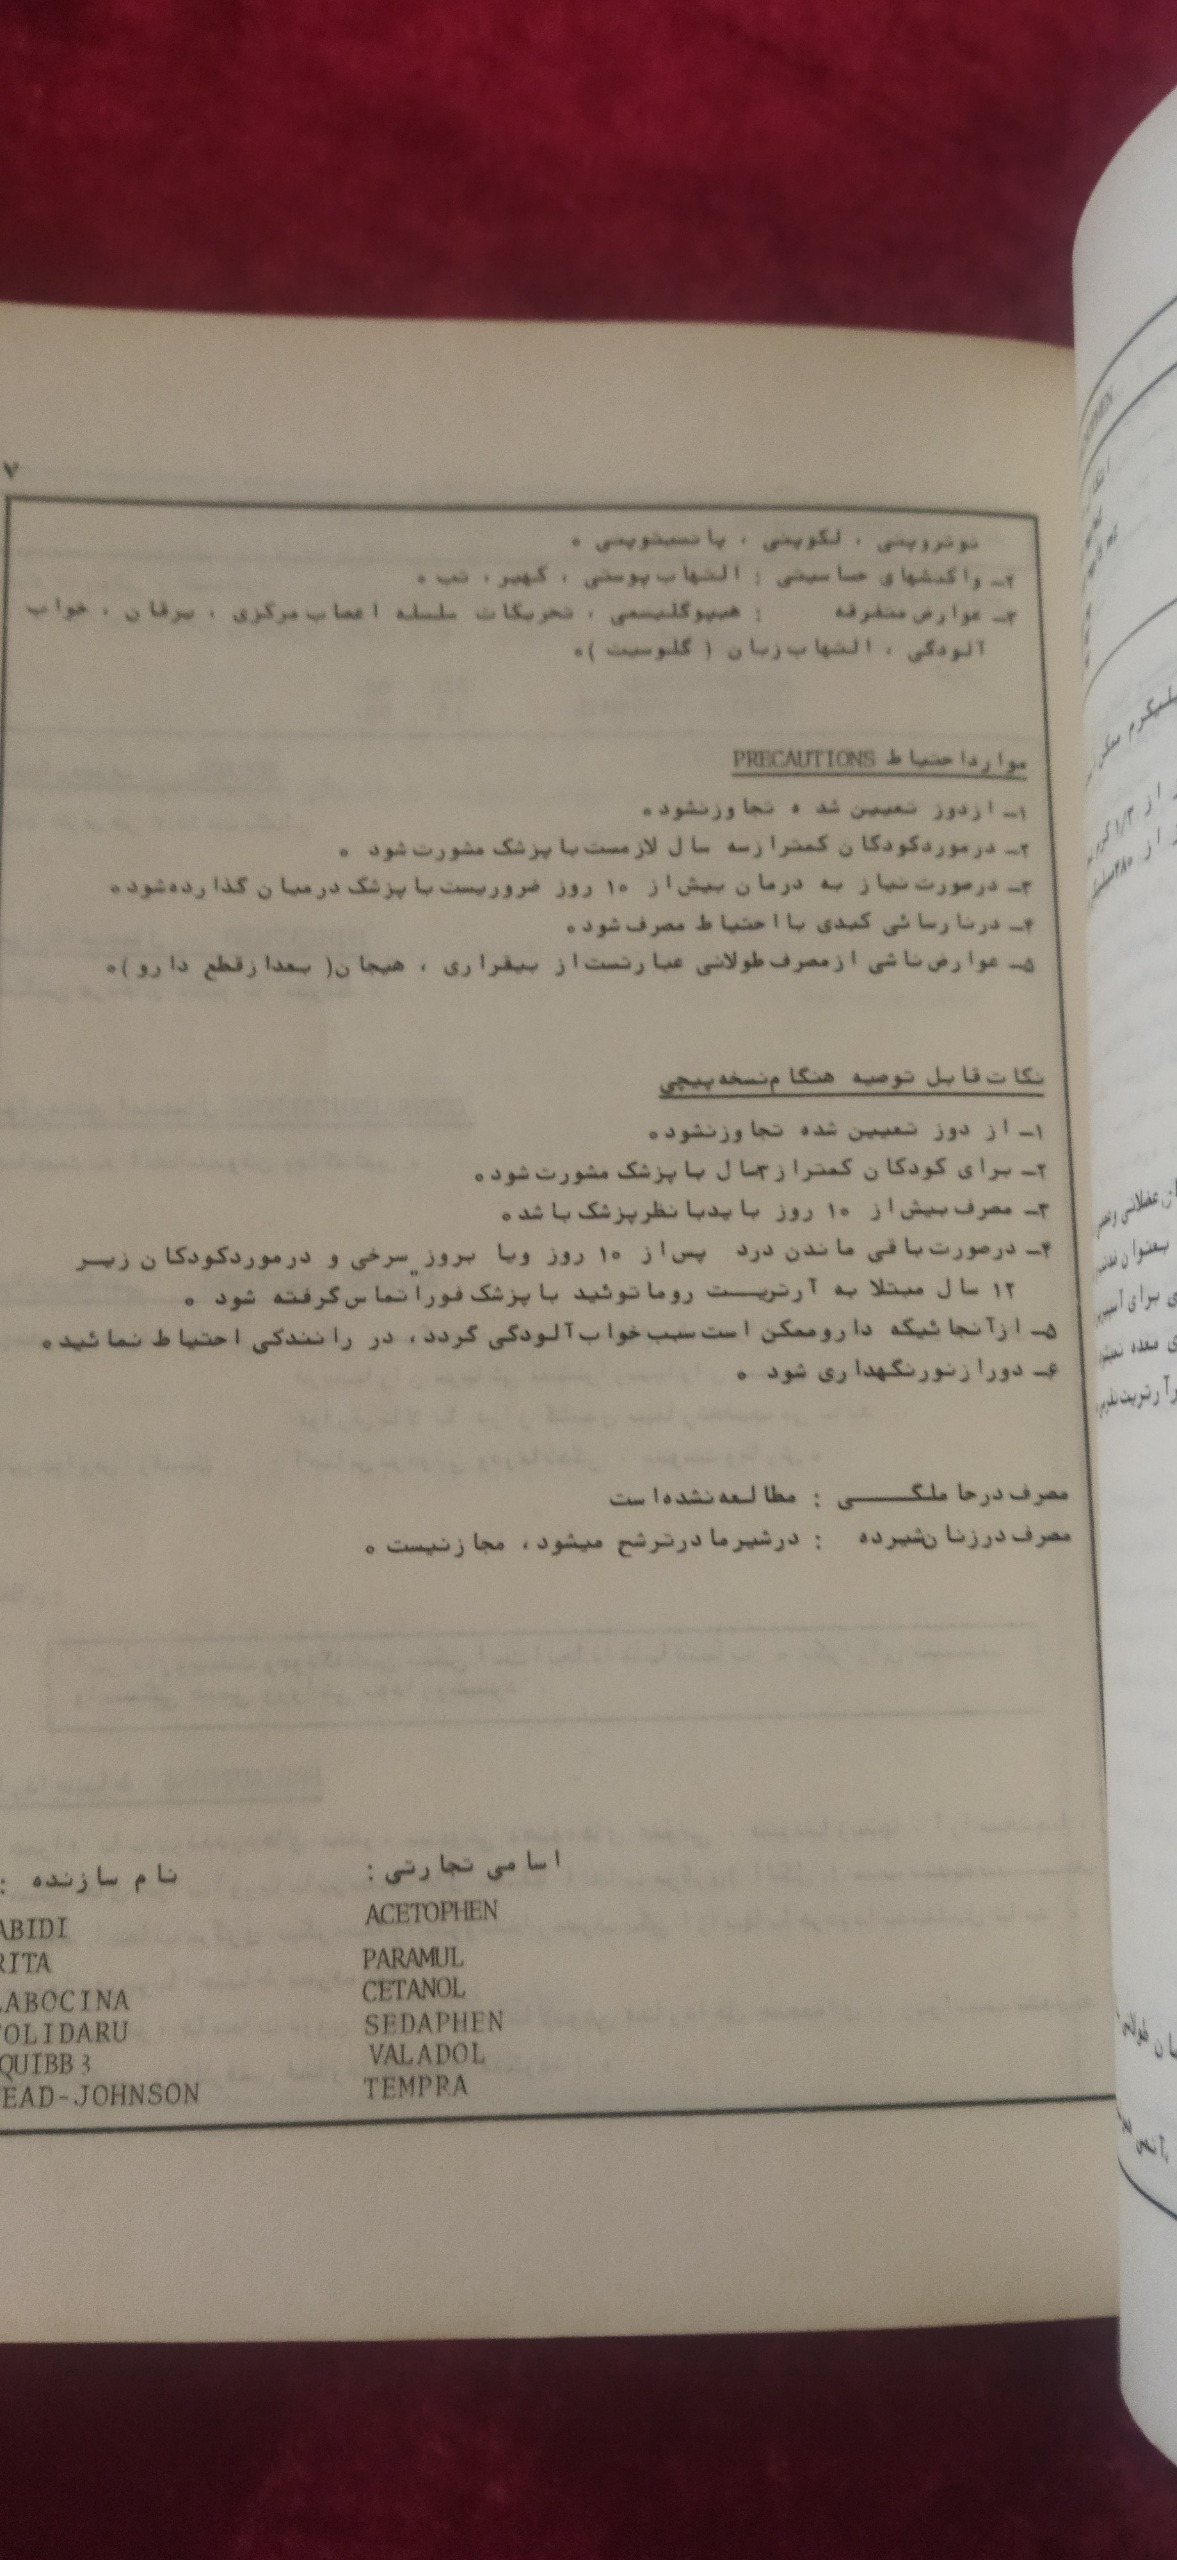 ۷
نوتروپنی ، لکوپنی ، پانسیتوپنی ۰
۲ـ واکنشهای حساسیتی : التهاب پوستی ، کهیر ، تب ۰
۳ـ عوارض متفرقه : هیپوگلیسمی ، تحریکات سلسله اعصاب مرکزی ، یرقان ، خواب
آلودگی ، التهاب زبان ( گلوسیت )۰
موارد احتیاط PRECAUTIONS
۱ـ از دوز تعیین شده تجاوز نشود۰
۲ـ در مورد کودکان کمتر از سه سال لازمست با پزشک مشورت شود ۰
۳ـ در صورت نیاز به درمان بیش از ۱۰ روز ضروریست با پزشک در میان گذارده شود۰
۴ـ در نارسائی کبدی با احتیاط مصرف شود۰
۵ـ عوارض ناشی از مصرف طولانی عبارتست از بیقراری ، هیجان( بعد از قطع دارو )۰
نکات قابل توصیه هنگام نسخه پیچی
۱ـ از دوز تعیین شده تجاوز نشود۰
۲ـ برای کودکان کمتر از ۳سال با پزشک مشورت شود۰
۳ـ مصرف بیش از ۱۰ روز باید با نظر پزشک باشد۰
۴ـ در صورت باقی ماندن درد پس از ۱۰ روز ویا بروز سرخی و در مورد کودکان زیر
۱۲ سال مبتلا به آرتریت روماتوئید با پزشک فورا تماس گرفته شود ۰
۵ـ از آنجائیکه دارو ممکن است سبب خواب آلودگی گردد ، در رانندگی احتیاط نمائید۰
۶ـ دور از نور نگهداری شود ۰
مصرف در حاملگی : مطالعه نشده است
مصرف در زنان شیرده : در شیر مادر ترشح میشود ، مجاز نیست ۰
اسامی تجارتی : نام سازنده :
ACETOPHEN ABIDI
PARAMUL RITA
CETANOL LABOCINA
SEDAPHEN TOLIDARU
VALADOL QUIBB 3
TEMPRA EAD-JOHNSON